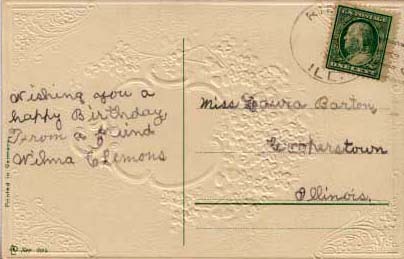 Wishing you a
happy Birthday,
From a friend
Wilma Clemons
Miss Laura Barton,
Cooperstown
Illinois.
ILL.
U.S. POSTAGE
ONE CENT
Printed in Germany